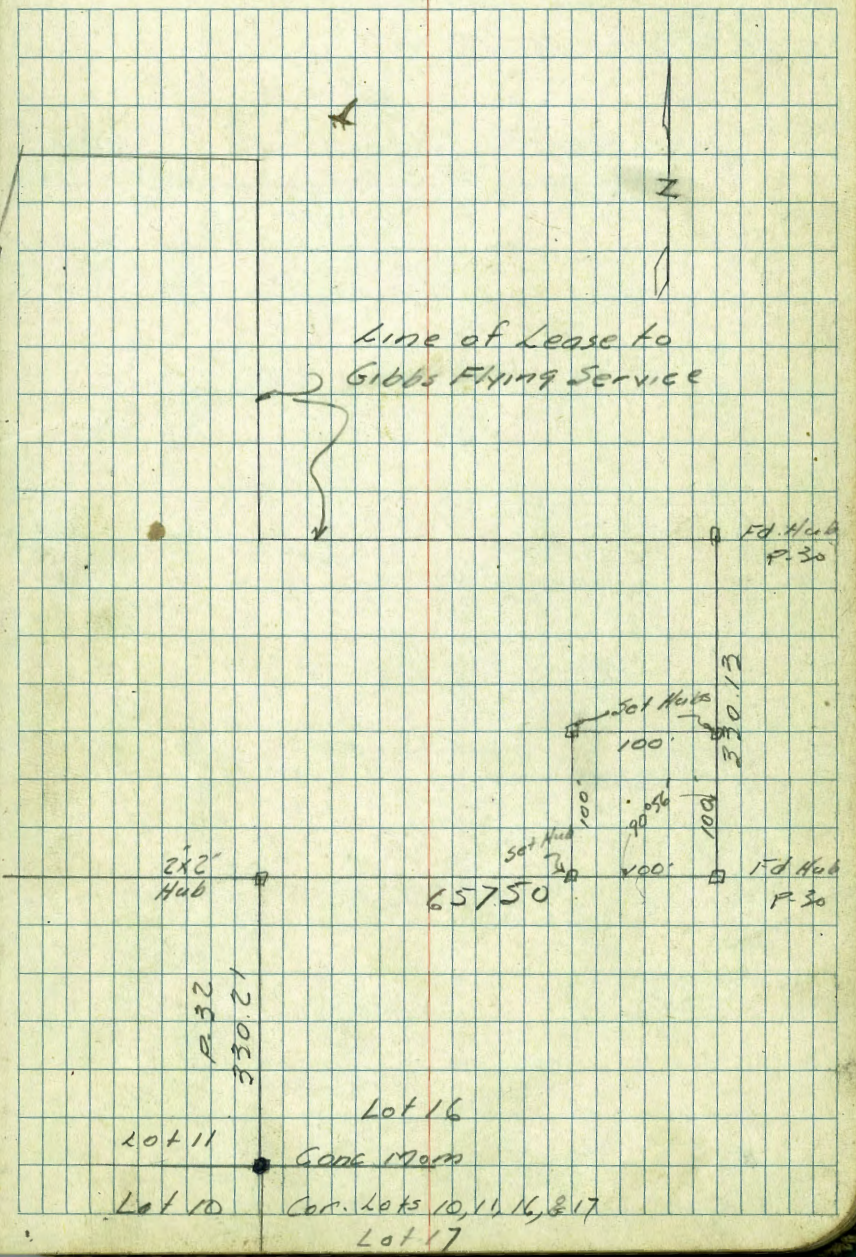 N
Line of Lease to
Gibbs Flying Service
Fd. Hub
P-30
330.13
Set Hubs
100'
100'
90°56'
100'
Set Hub
100'
2"x2"
Hub
657.50
Fd Hub
P-30
P. 32
330.21
Lot 16
Lot 11
Conc Mom
Lot 10
Cor. Lots 10, 11, 16, & 17
Lot 17